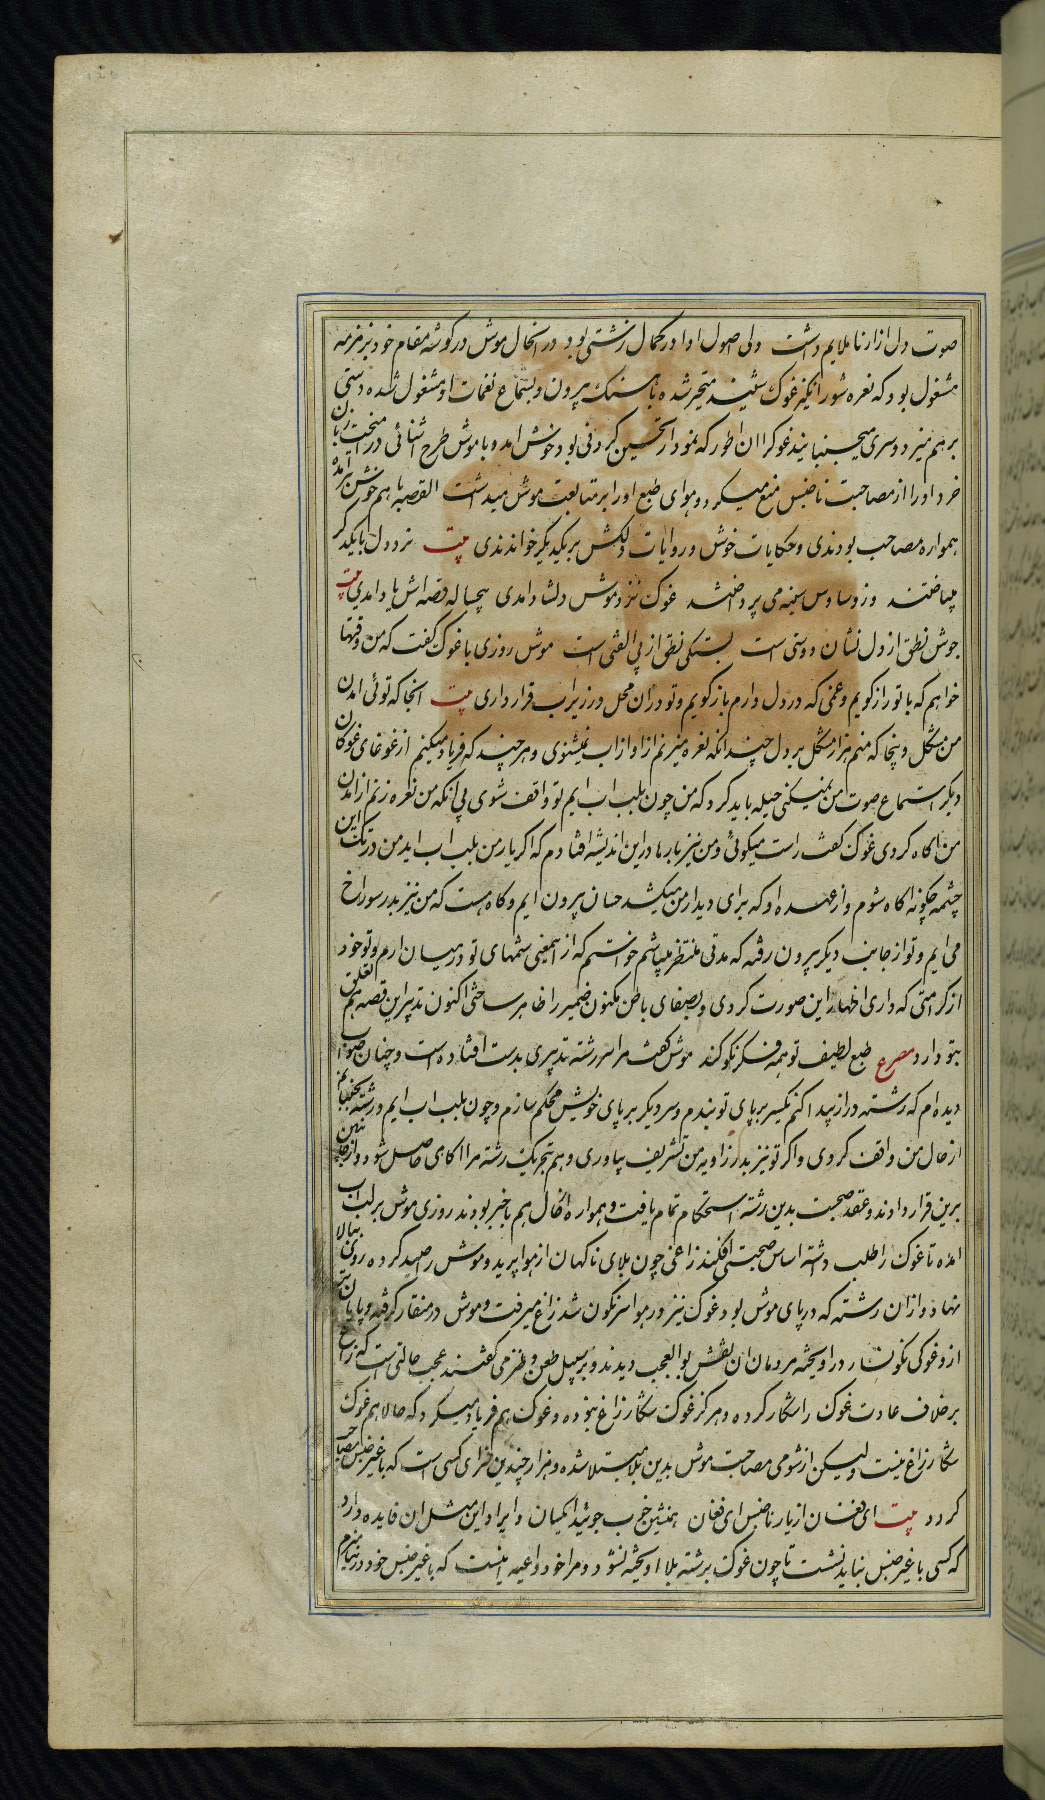 صوت دل ازار نا ملایم داشت ولی اصول اوا در کمال زشتی بود درانحال موش در گوشه مقام خود بزمزمه
مشغول بود که نعره شور انگیز غوک شنید متحیر شده باهنک بیرون و بسماع نغمات او مشغول شده دستی
برهم میزد و سری میجنبانید غوکرا ان اطور که بمود ار تحسین کردنی بود خوش امد و با موش طرح اشنائی در
خرد اورا از مصاحبت ناجنس منع میکرد و هوای طبع اورا بر متابعت موش میداشت القصه با هم خوش برامده
همواره مصاحب بودندی و حکایات خوش و روایات دلکش بریکدیگر خواندندی بیت نرد دل با یکدکر
میباختند وز وساوس سینه می پرداختند غوک نزد موش دلشاد امدی پنجساله قصه اش یاد امدی بیت
جوش نطق از دل نشان دوستی است بستکی نطق از بی الفتی است موش روزی با غوک گفت که من وقتها
خواهم که با تو راز کویم و غمی که در دل دارم باز کویم و تو دران محل در زیر اب قرار داری بیت انجا که توئی امدن
من مشکل وینجا که منم هزار مشکل بر دل چندانکه نعره میزنم از اواز اب نمیشنوی و هر چند که فریاد میکنم از غوغای غوکان
دیکر استماع صوت من نمیکنی حیله باید کرد که من چون بلب اب ایم تو واقف شوی بی انکه من نعره زنم از امدن
من اکاه کردی غوک گفت راست میکوئی و من نیز بارها درین اندیشه افتادم که اکر یار من بلب اب اید من در تک این
چشمه چکونه اکاه شوم و از عهده او که برای دیدار من میکشد چسان بیرون ایم و کاه هست که من نیز بدر سوراخ
می ایم و تو از جانب دیکر بیرون رفته که مدتی منتظر میباشم خواستم که از اینمعنی شمهای تو درمیان ارم و تو خود
از کرامتی که داری اظهار این صورت کردی و بصفای باطن مکنون ضمیر را ظاهر ساختی اکنون تدبیر این قصه هم تعلق
بتو دارد مصرع طبع لطیف تو همه فکر نکو کند موش کفت مرا سر رشته تدبیری بدست افتاده است و چنان صواب
دیده ام که رشته دراز پیدا کنم یکسر بر پای تو بندم و سر دیکر بر پای خویش محکم سازم و چون بلب اب ایم و رشته بجنبانم
از حال من واقف کردی و اکر تو نیز بدر زاویه من تشریف بیاوری و هم بتحریک رشته مرا اکاهی حاصل شود و از جانبین
برین قرار دادند و عقد صحبت بدین رشته استحکام تمام یافت و همواره از حال هم باخبر بودند روزی موش بر لب اب
امده تا غوک را طلب داشته اساس صحبتی افکند زاغی چون بلای ناکهان از هوا پرید و موش را صید کرده روی ببالا
نهاد و ازان رشته که در پای موش بود غوک نیز در هوا سرنکون شد زاغ میرفت و موش در منقار کرفته و پایان تر
از و غوکی نکونسار در اویخته مردمان ان نقش بوالعجب دیدند و بر سبیل طعن و طنز می گفتند عجب حالتی است که زاغ
بر خلاف عادت غوک را شکار کرده و هرکز غوک شکار زاغ نبوده و غوک هم فریاد میکرد که حالا هم غوک
شکار زاغ نیست ولیکن از شومی مصاحبت موش بدین بلا مبتلا شده و هزار چندین سزای کسی است که با غیر جنس مصاحب
کردد بیت ای فغان از یار ناجنس ای فغان همنشین خوب جوئید ای مهان و ایراد این مثل ان فایده دارد
که کسی با غیر جنس نباید نشست تا چون غوک برشته بلا اویخته نشود و مرا خود داعیه نیست که با غیر جنس خود در نیامیزم